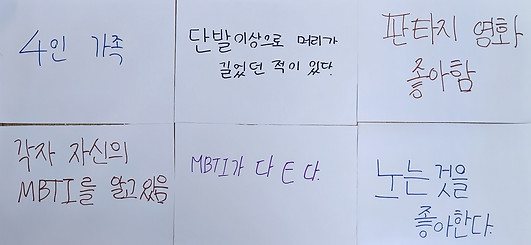 4인 가족
단발이상으로 머리가
길었던 적이 있다.
판타지 영화
좋아함
각자 자신의
MBTI를 알고있음
MBTI가 다 E 다.
노는 것을
좋아한다.